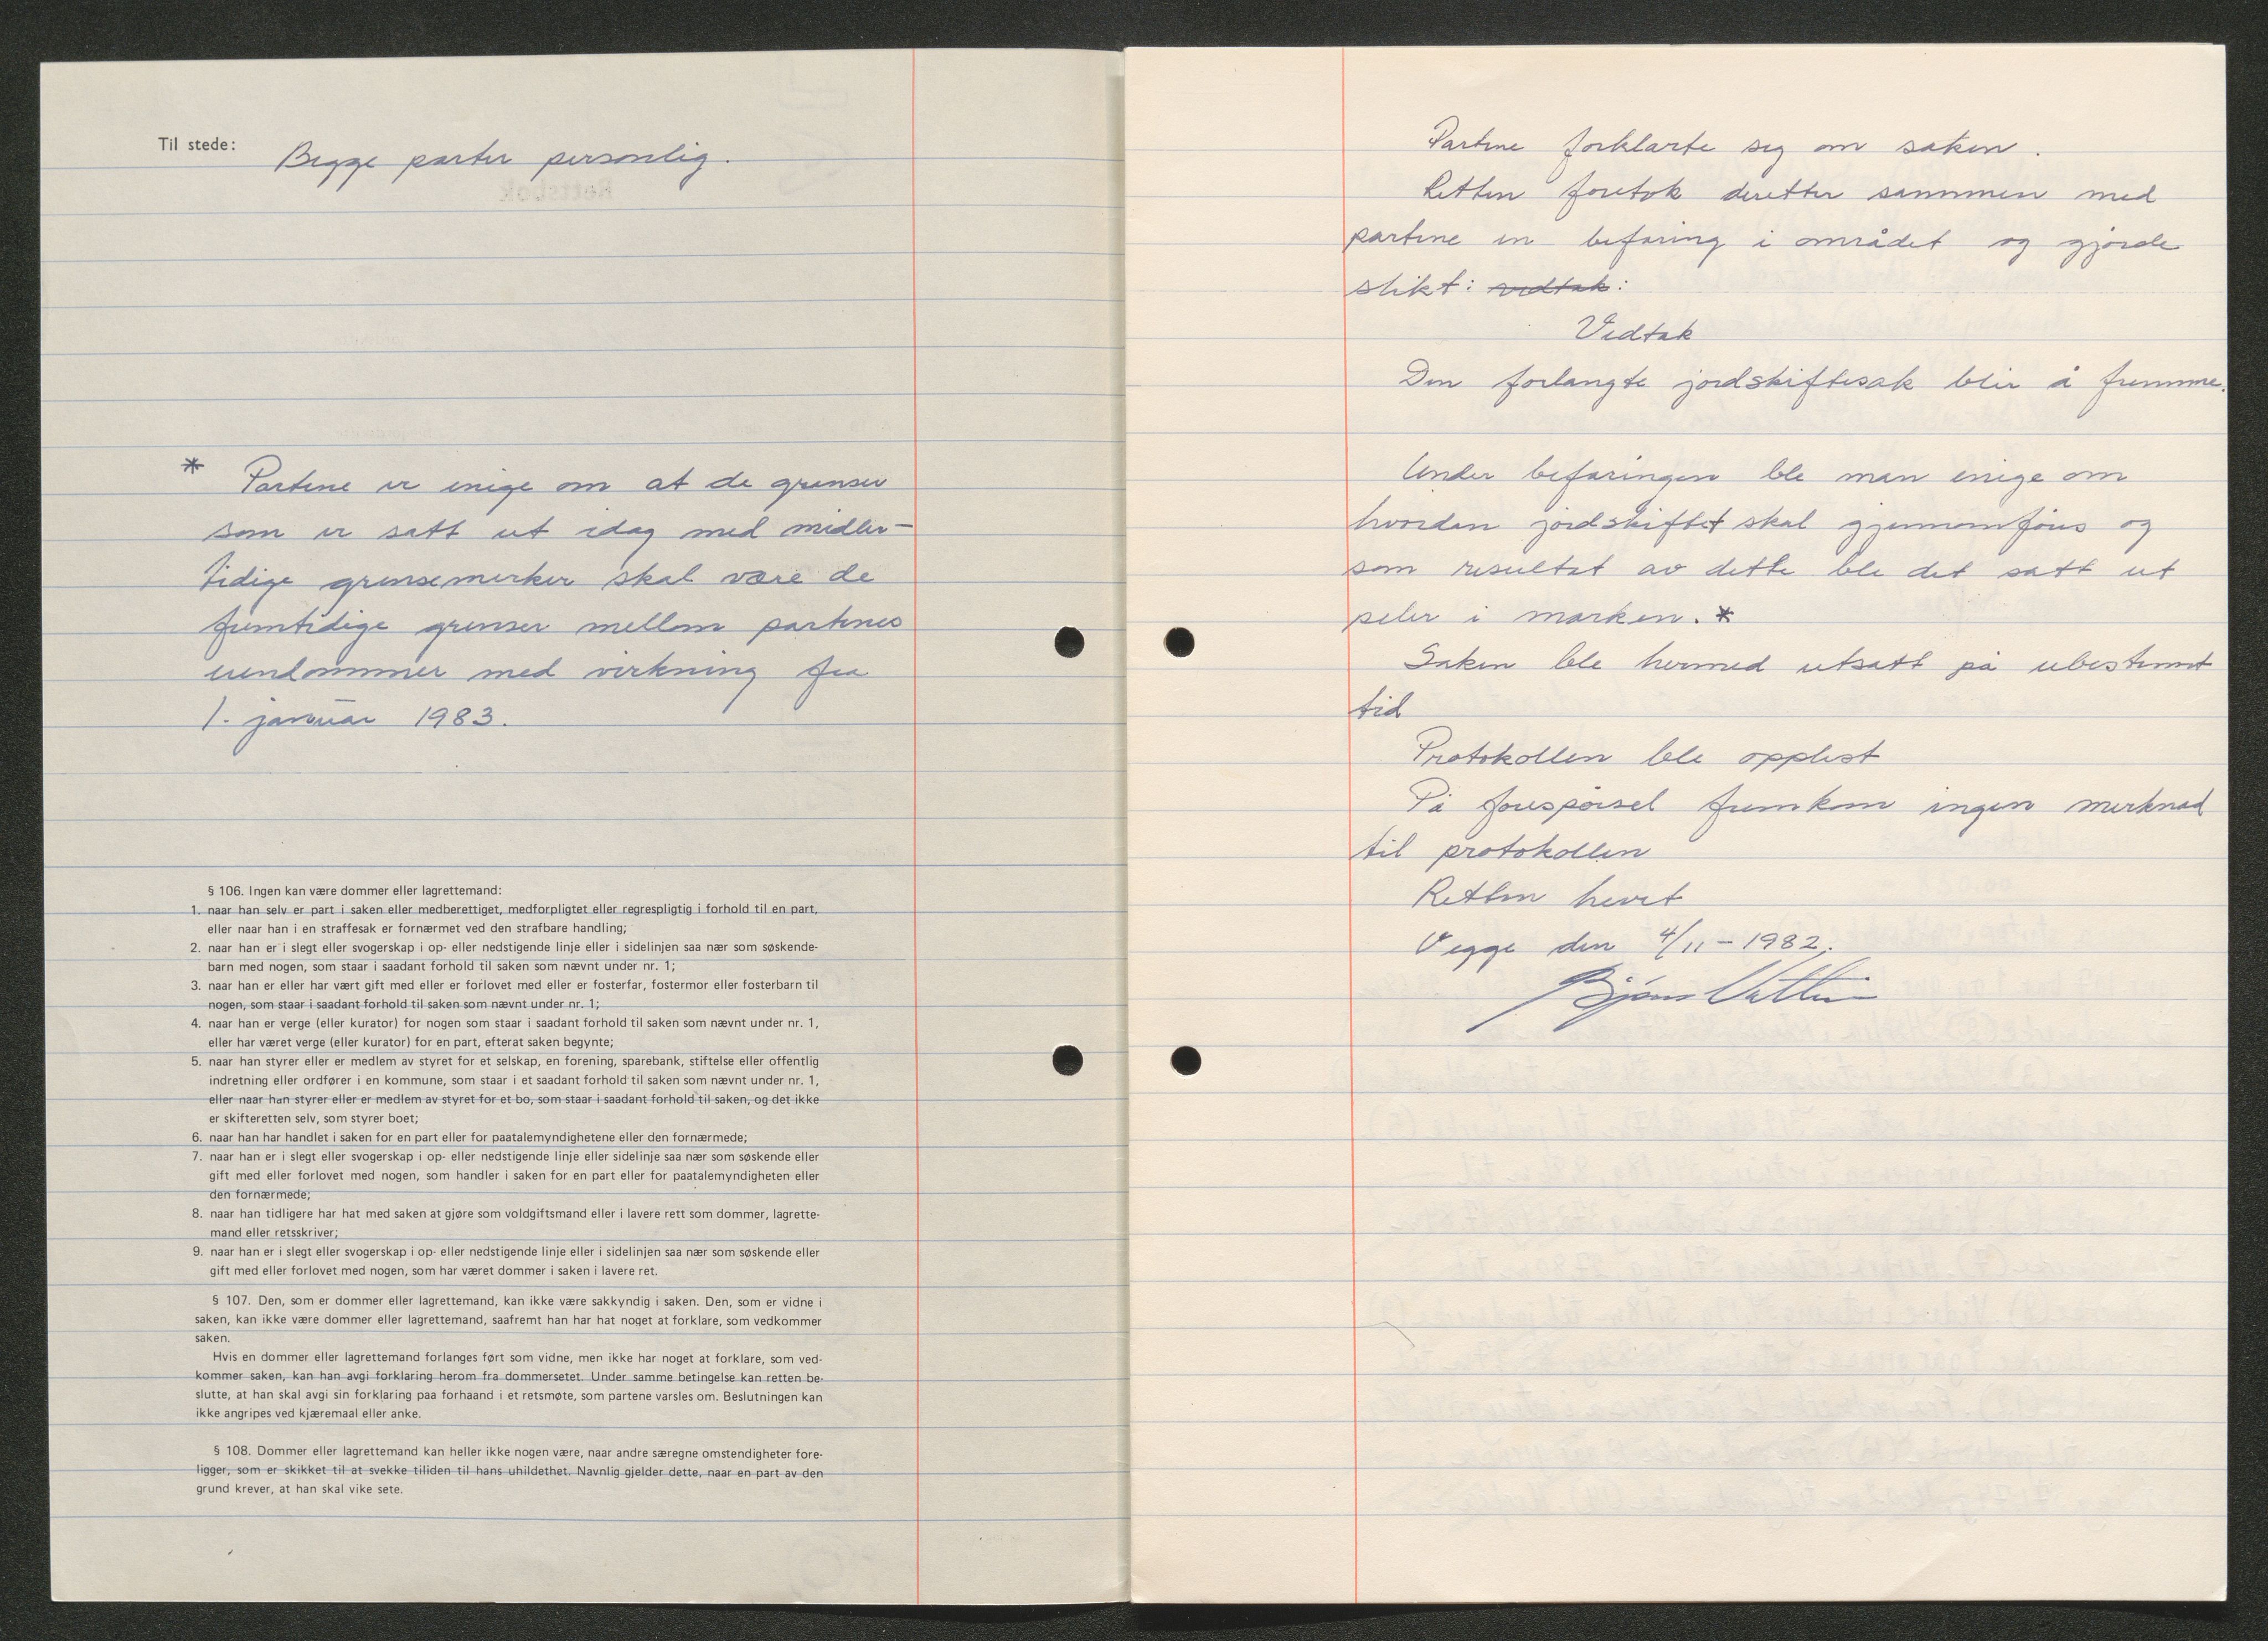 Til stede: Begge parter personlig.
* Partene er enige om at de grenser
som er satt ut idag med midler-
tidige grensemerker skal være de
fremtidige grenser mellom partenes
eiendommer med virkning fra
1. januar 1983.
§ 106. Ingen kan være dommer eller lagrettemand:
1. naar han selv er part i saken eller medberettiget, medforpligtet eller regrespligtig i forhold til en part,
eller naar han i en straffesak er fornærmet ved den strafbare handling;
2. naar han er i slegt eller svogerskap i op- eller nedstigende linje eller i sidelinjen saa nær som søskende-
barn med nogen, som staar i saadant forhold til saken som nævnt under nr. 1;
3. naar han er eller har vært gift med eller er forlovet med eller er fosterfar, fostermor eller fosterbarn til
nogen, som staar i saadant forhold til saken som nævnt under nr. 1;
4. naar han er verge (eller kurator) for nogen som staar i saadant forhold til saken som nævnt under nr. 1,
eller har været verge (eller kurator) for en part, efterat saken begynte;
5. naar han styrer eller er medlem av styret for et selskap, en forening, sparebank, stiftelse eller offentlig
indretning eller ordfører i en kommune, som staar i et saadant forhold til saken som nævnt under nr. 1,
eller naar han styrer eller er medlem av styret for et bo, som staar i saadant forhold til saken, og det ikke
er skifteretten selv, som styrer boet;
6. naar han har handlet i saken for en part eller for paatalemyndighetene eller den fornærmede;
7. naar han er i slegt eller svogerskap i op- eller nedstigende linje eller sidelinje saa nær som søskende eller
gift med eller forlovet med nogen, som handler i saken for en part eller for paatalemyndigheten eller
den fornærmede;
8. naar han tidligere har hat med saken at gjøre som voldgiftsmand eller i lavere rett som dommer, lagrette-
mand eller retsskriver;
9. naar han er i slegt eller svogerskap i op- eller nedstigende linje eller i sidelinjen saa nær som søskende eller
gift med eller forlovet med nogen, som har været dommer i saken i lavere ret.
§ 107. Den, som er dommer eller lagrettemand, kan ikke være sakkyndig i saken. Den, som er vidne i
saken, kan ikke være dommer eller lagrettemand, saafremt han har hat noget at forklare, som vedkommer
saken.
Hvis en dommer eller lagrettemand forlanges ført som vidne, men ikke har noget at forklare, som ved-
kommer saken, kan han avgi forklaring herom fra dommersetet. Under samme betingelse kan retten be-
slutte, at han skal avgi sin forklaring paa forhaand i et retsmøte, som partene varsles om. Beslutningen kan
ikke angripes ved kjæremaal eller anke.
§ 108. Dommer eller lagrettemand kan heller ikke nogen være, naar andre særegne omstendigheter fore-
ligger, som er skikket til at svekke tiliden til hans uhildethet. Navnlig gjelder dette, naar en part av den
grund krever, at han skal vike sete.
Partene forklarte seg om saken.
Retten foretok deretter sammmen med
partene en befaring i området og gjorde
slikt: vedtak:
Vedtak
Den forlangte jordskiftesak blir å fremme.
Under befaringen ble man enige om
hvordan jordskiftet skal gjennomføres og
som resultat av dette ble det satt ut
peler i marken. *
Saken ble hermed utsatt på ubestemt
tid
Protokollen ble opplest
På forespørsel fremkom ingen merknad
til protokollen
Retten hevet
Vegge den 4/11 - 1982.